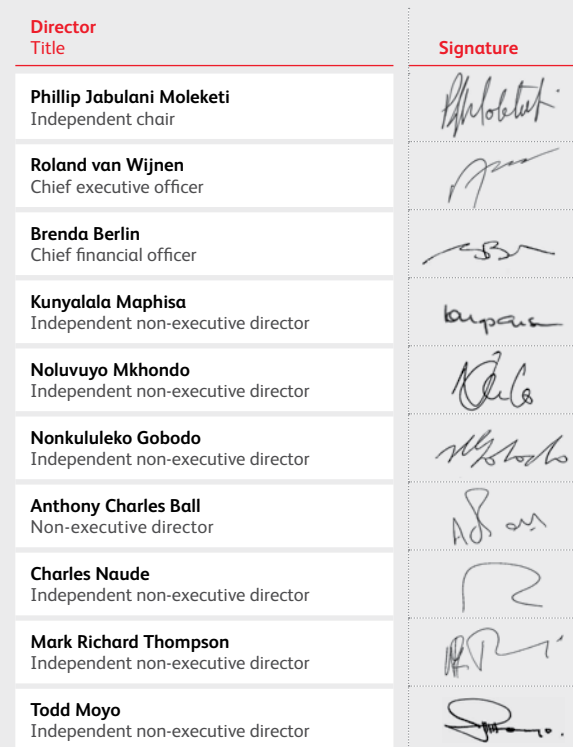 Director
Title
Signature
Phillip Jabulani Moleketi
Independent chair
Roland van Wijnen
Chief executive officer
Brenda Berlin
Chief financial officer
Kunyalala Maphisa
Independent non-executive director
Noluvuyo Mkhondo
Independent non-executive director
Nonkululeko Gobodo
Independent non-executive director
Anthony Charles Ball
Non-executive director
Charles Naude
Independent non-executive director
Mark Richard Thompson
Independent non-executive director
Todd Moyo
Independent non-executive director